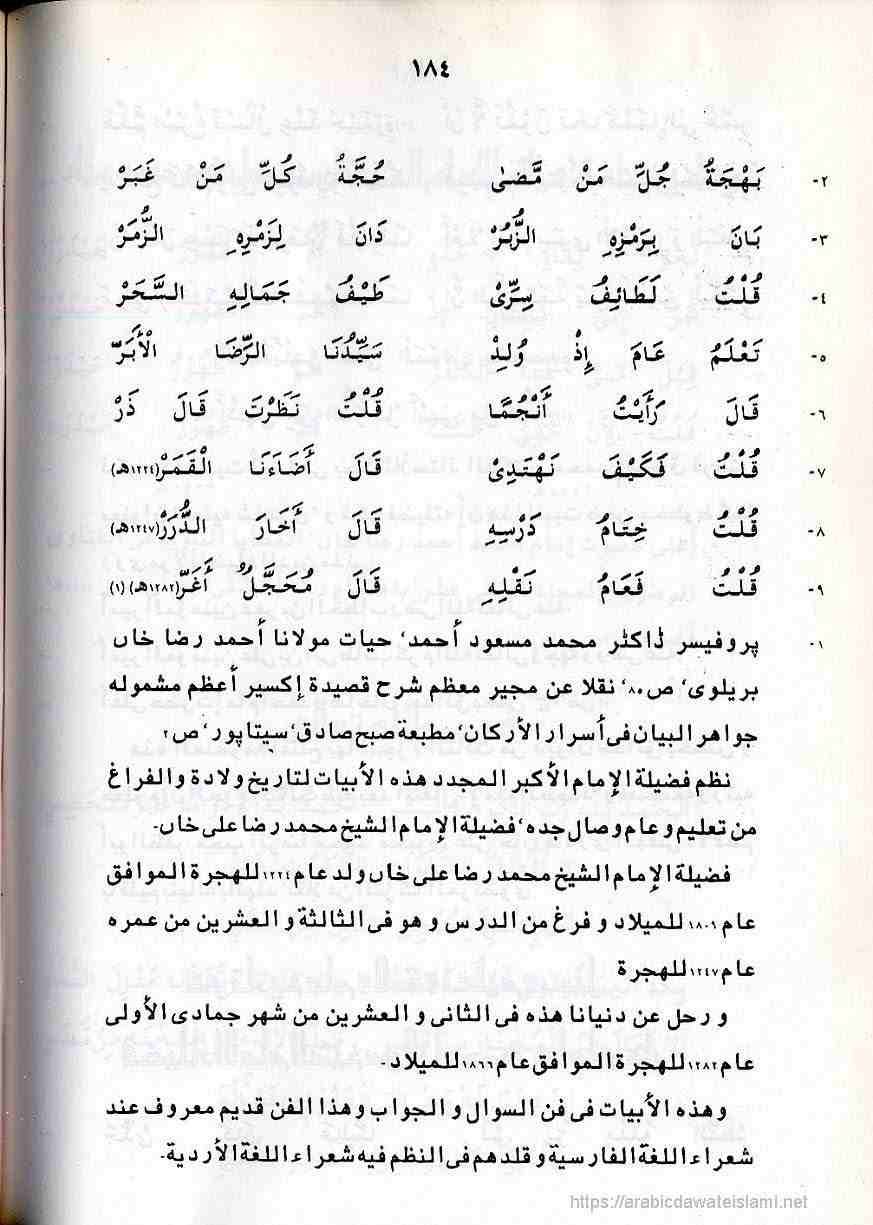 ١٨٤
٢- بَهْجَةُ جُلِّ مَنْ مَّضىٰ حُجَّةُ كُلِّ مَنْ غَبَرْ
٣- بَانَ بِرَمْزِهِ الزُّبُرْ دَانَ لِزَمْرِهِ الزُّمَرْ
٤- قُلْتُ لَطَائِفُ سِرِّىْ طَيْفُ جَمَالِهِ السَّحَرْ
٥- تَعْلَمُ عَامَ إِذْ وُلِدْ سَيِّدُنَا الرِّضَا الْأَبَرّ
٦- قَالَ رَأَيْتُ أَنْجُمًا قُلْتُ نَظَرْتَ قَالَ ذَرْ
٧- قُلْتُ فَكَيْفَ نَهْتَدِىْ قَالَ أَضَاءَنَا الْقَمَرْ(١٢٢٤هـ)
٨- قُلْتُ خِتَامُ دَرْسِهِ قَالَ أَخَارَ الدُّرَرْ(١٢٤٧هـ)
٩- قُلْتُ فَعَامُ نَقْلِهِ قَالَ مُحَجَّلٌ أَغَرّ(١٢٨٢هـ) (١)
١- پروفيسر ڈاکٹر محمد مسعود أحمد، حيات مولانا أحمد رضا خاں
بريلوى، ص٨٠، نقلا عن مجير معظم شرح قصيدة إكسير أعظم مشموله
جواهر البيان فى أسرار الأركان، مطبعة صبح صادق، سيتاپور، ص٢
نظم فضيلة الإمام الأكبر المجدد هذه الأبيات لتاريخ ولادة والفراغ
من تعليم و عام وصال جده، فضيلة الإمام الشيخ محمد رضا على خاں-
فضيلة الإمام الشيخ محمد رضا على خاں ولد عام ١٢٢٤ للهجرة الموافق
عام ١٨٠٩ للميلاد و فرغ من الدرس و هو فى الثالثة و العشرين من عمره
عام ١٢٤٧ للهجرة
و رحل عن دنيانا هذه فى الثانى و العشرين من شهر جمادى الأولى
عام ١٢٨٢ للهجرة الموافق عام ١٨٦٦ للميلاد-
وهذه الأبيات فى فن السوال و الجواب وهذا الفن قديم معروف عند
شعراء اللغة الفارسية و قلدهم فى النظم فيه شعراء اللغة الأردية-
https://arabicdawateislami.net